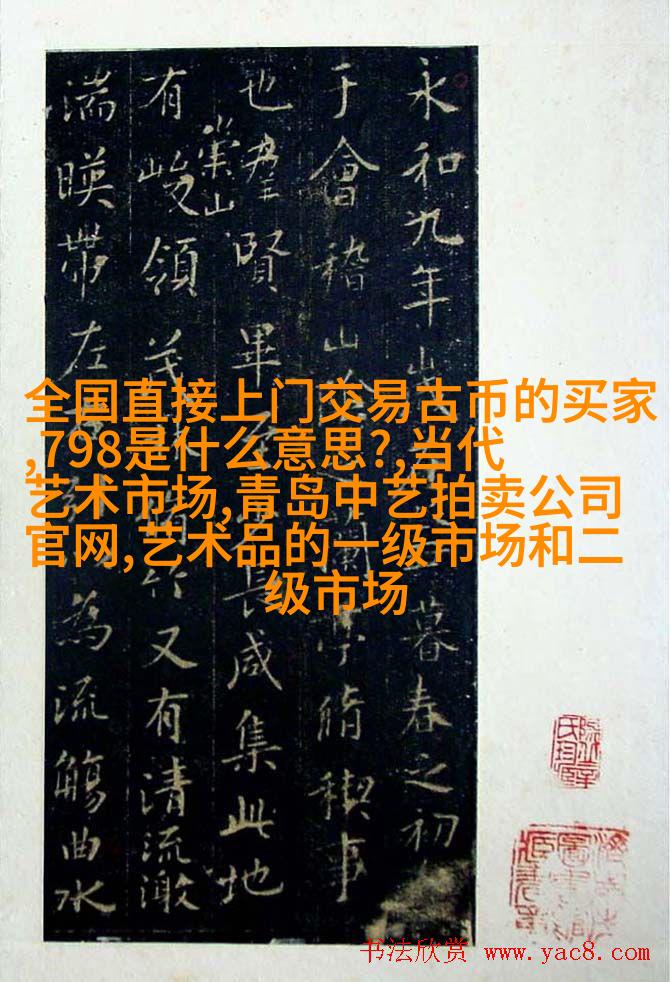 永和九年暮春之初
于會稽山亭脩禊事
也羣賢畢長咸集此地
有崇山峻領茂又有清流激
湍暎帶左為流觴曲水
全国直接上门交易古币的买家
,798是什么意思?,当代
艺术市场,青岛中艺拍卖公司
官网,艺术品的一级市场和二
级市场
书法欣赏 www.yac8.com